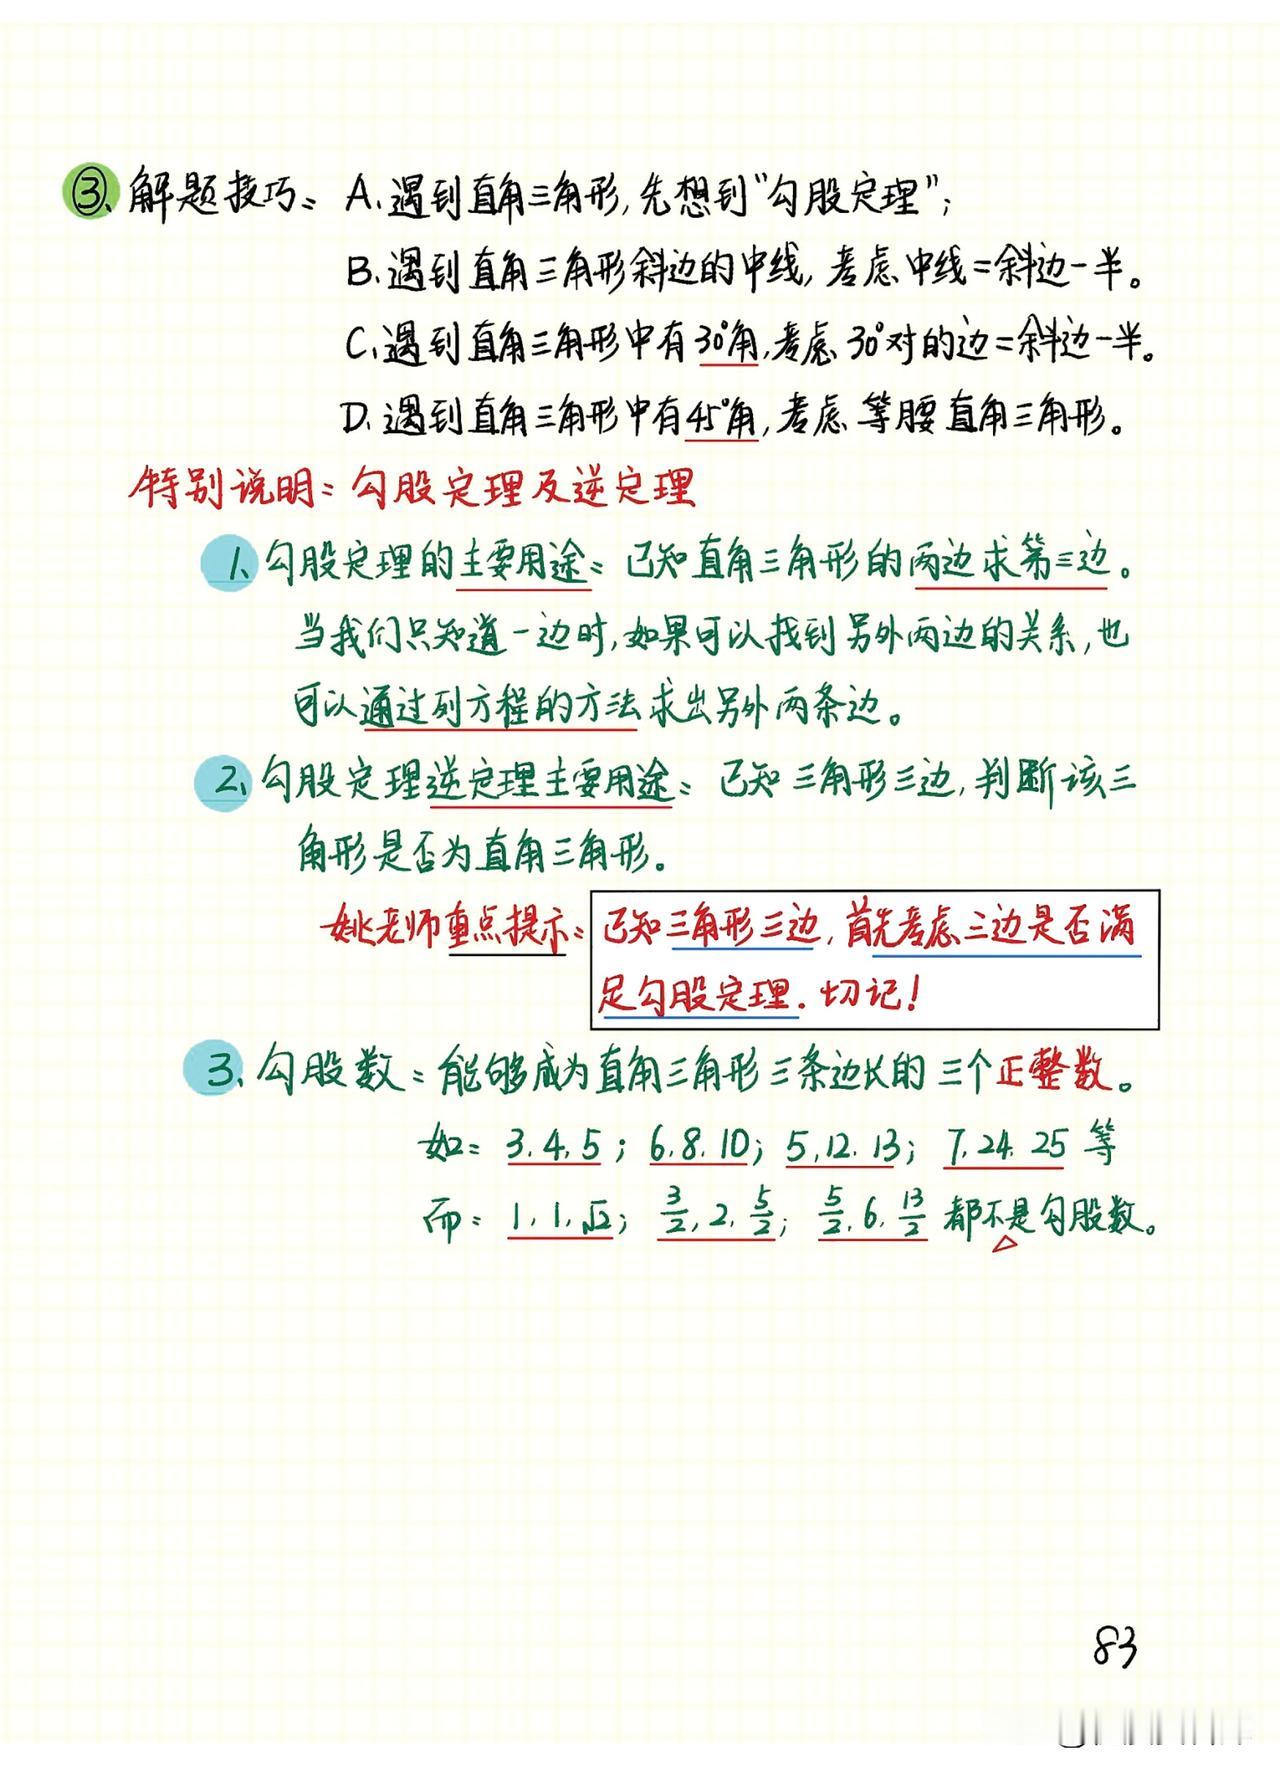 ③、解题技巧：A、遇到直角三角形,先想到“勾股定理”;
B、遇到直角三角形斜边的中线,考虑中线=斜边一半。
C、遇到直角三角形中有30°角,考虑30°对的边=斜边一半。
D、遇到直角三角形中有45°角,考虑等腰直角三角形。
特别说明：勾股定理及逆定理
1、勾股定理的主要用途：已知直角三角形的两边求第三边。
当我们只知道一边时,如果可以找到另外两边的关系,也
可以通过列方程的方法求出另外两条边。
2、勾股定理逆定理主要用途：已知三角形三边,判断该三
角形是否为直角三角形。
姚老师重点提示：已知三角形三边,首先考虑三边是否满
足勾股定理.切记!
3、勾股数：能够成为直角三角形三条边长的三个正整数。
如：3.4.5;6.8.10;5.12.13;7.24.25等
而：1.1.√2;3/2,2.5/2;5/2.6.13/2都不是勾股数。
83